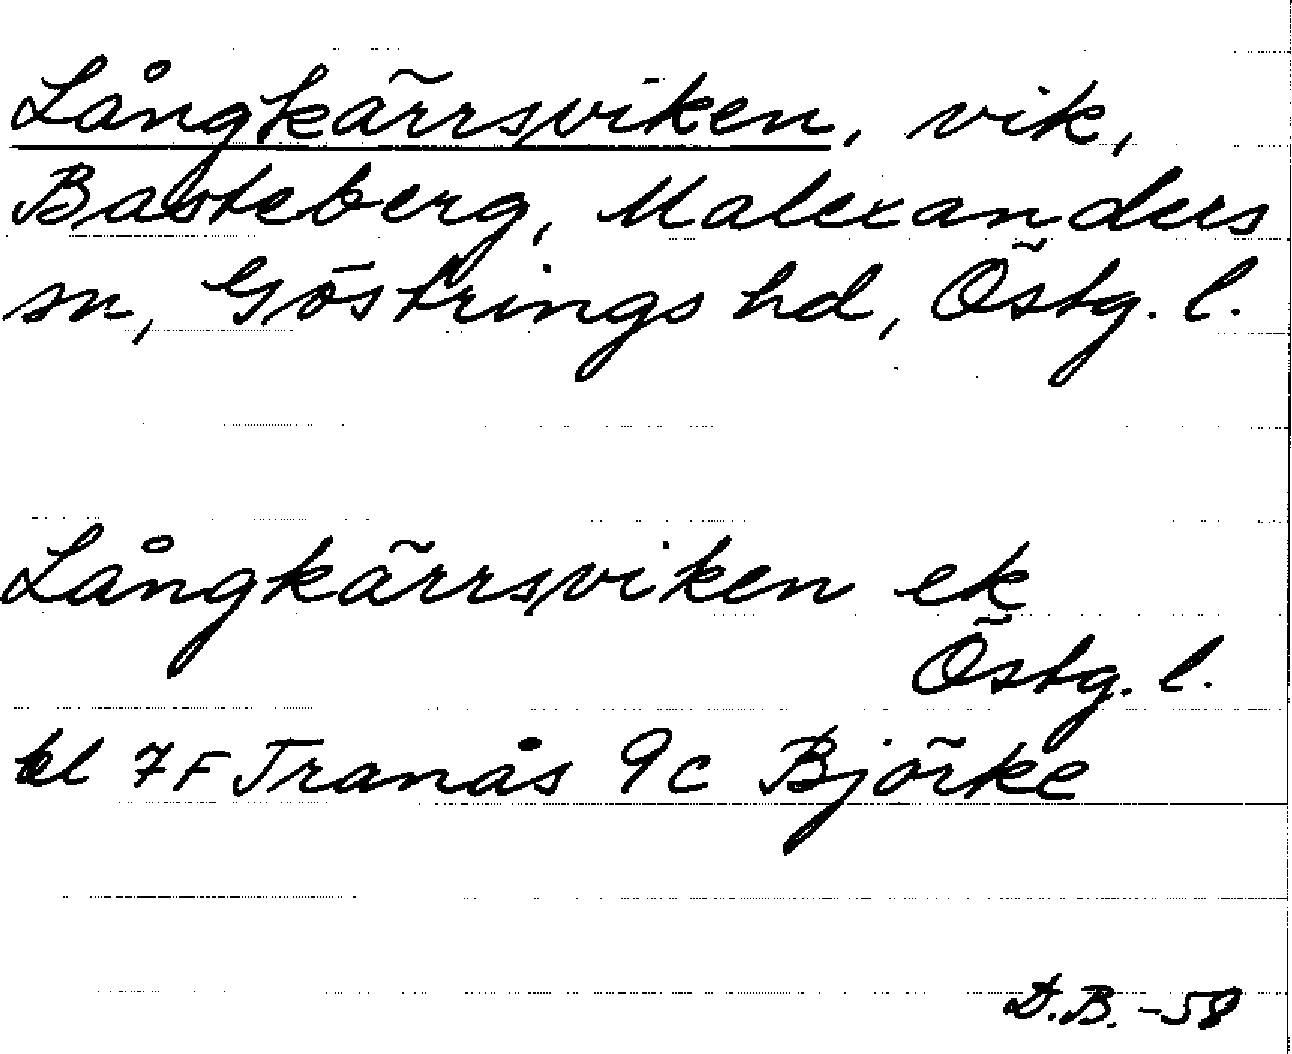 Långkärrsviken, vik,
Basteberg, Malexanders
sn, Göstrings hd, Östg. l.
Långkärrsviken ek
Östg. l.
bl 7F Tranås 9c Björke
D.B. -58